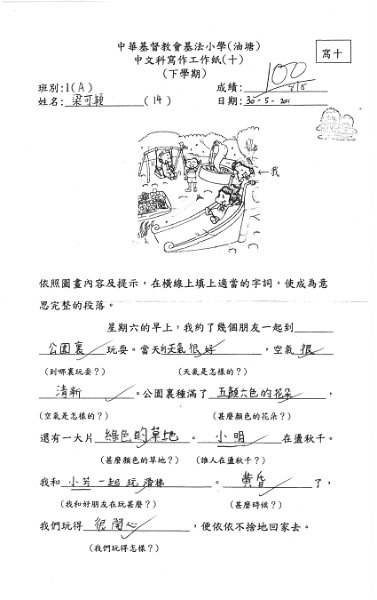 中華基督教會基法小學(油塘)
寫十
中文科寫作工作紙(十)
(下學期)
班別:1(A)
成績:100
姓名:梁可穎 (14)
日期:30-5-2011
←我
依照圖畫內容及提示，在橫線上填上適當的字詞，使成為意
思完整的段落。
星期六的早上，我約了幾個朋友一起到
公園裏玩耍。當天的天氣很好，空氣很
(到哪裏玩耍？) (天氣是怎樣的？)
清新。公園裏種滿了五顏六色的花朵，
(空氣是怎樣的？) (甚麼顏色的花朵？)
還有一大片綠色的草地。小明在盪秋千。
(甚麼顏色的草地？) (誰人在盪秋千？)
我和小芳一起玩滑梯。黃昏了，
(我和好朋友在玩甚麼？) (甚麼時候？)
我們玩得很開心，便依依不捨地回家去。
(我們玩得怎樣？)